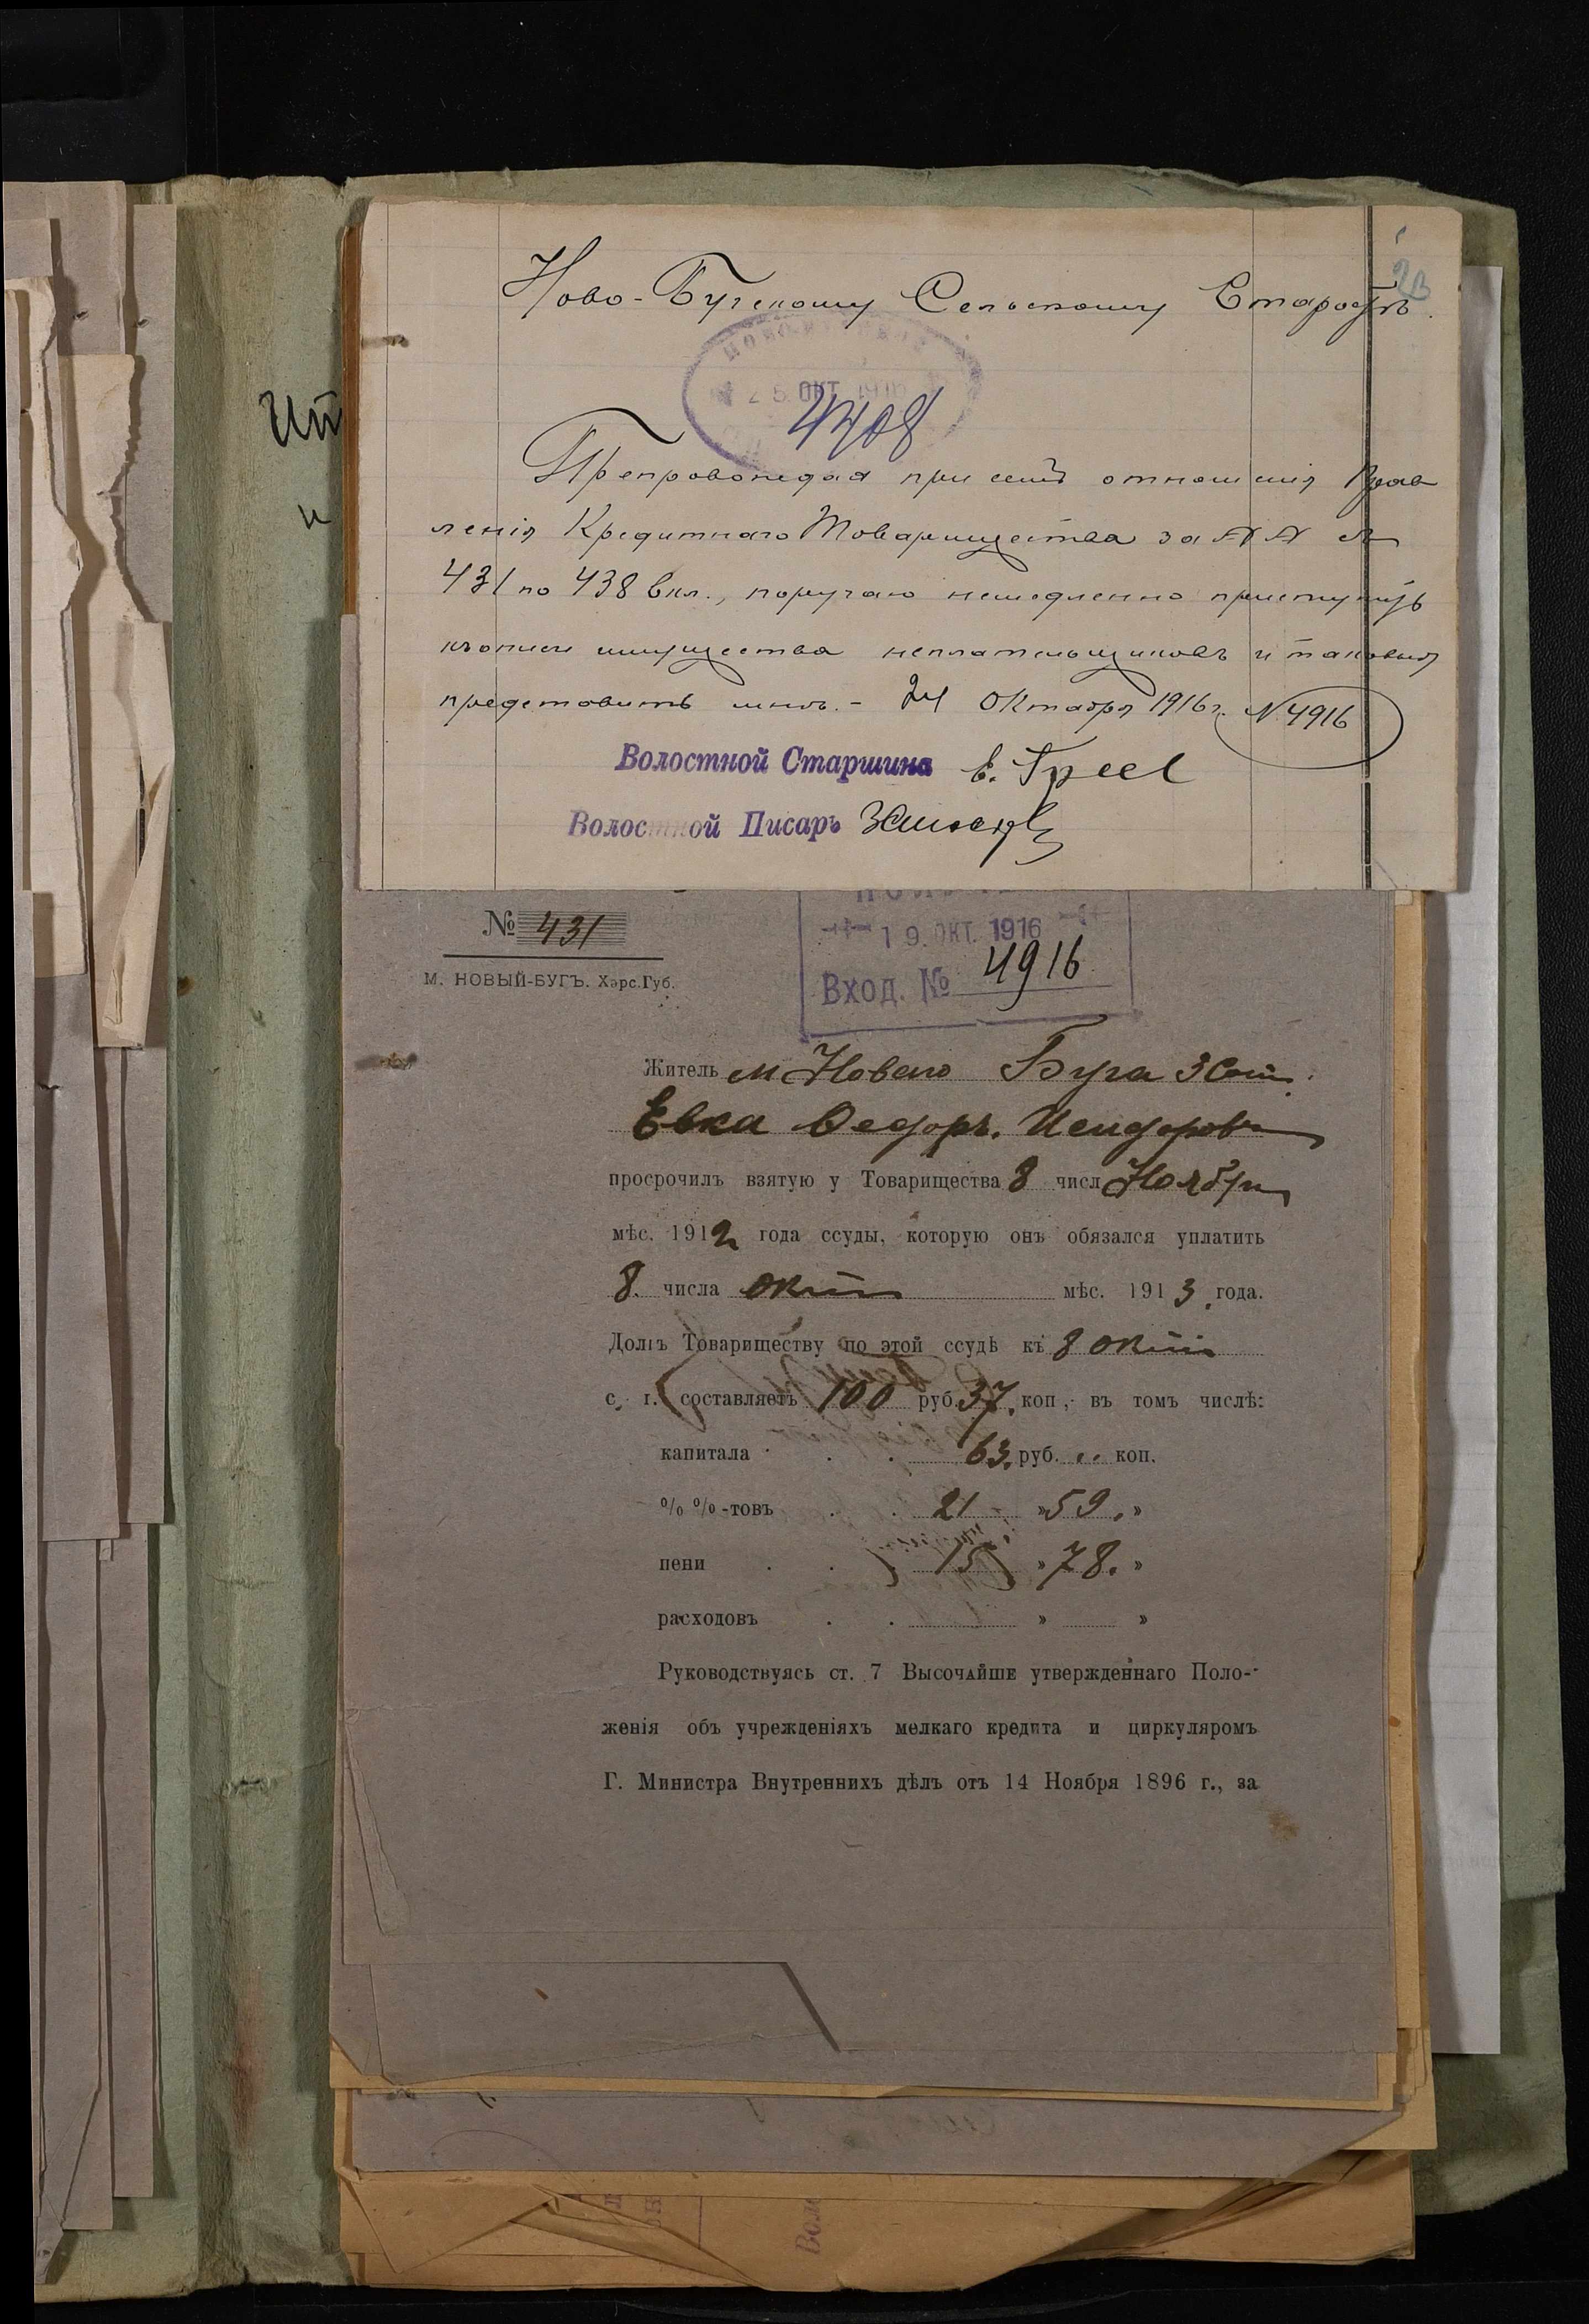 Ново-Бугскому Сельскому Старостѣ.
25 ОКТ. 1916
4408
Препровождая при семъ отношенія Прав
ленія Кредитнаго Товарищества за №№
431 по 438 вкл., поручаю немедленно приступить
къ описи имущества неплательщиковъ и таковыя
представить мнѣ. - 24 Октября 1916 г. № 4916
Волостной Старшина
Волостной Писарь
№ 431
М. НОВЫЙ-БУГЪ. Хэрс.Губ.
19. ОКТ. 1916
Вход. № 4916
Житель м Новаго Буга 3 Сот.
Евка Ѳедоръ. Исидоров
просрочилъ взятую у Товарищества 8 числ Ноября
мѣс. 1912 года ссуды, которую онъ обязался уплатить
8. числа окт мѣс. 1913 года.
Долгъ Товариществу по этой ссудѣ къ 8 окт
с. г. составляетъ 100 руб. 37. коп., въ томъ числѣ:
капитала 63. руб. „ коп.
% %-товъ 21 - » 59. »
пени 15 » 78. »
расходовъ » »
Руководствуясь ст. 7 Высочайше утвержденнаго Поло-
женія объ учрежденіяхъ мелкаго кредита и циркуляромъ
Г. Министра Внутреннихъ дѣлъ отъ 14 Ноября 1896 г., за